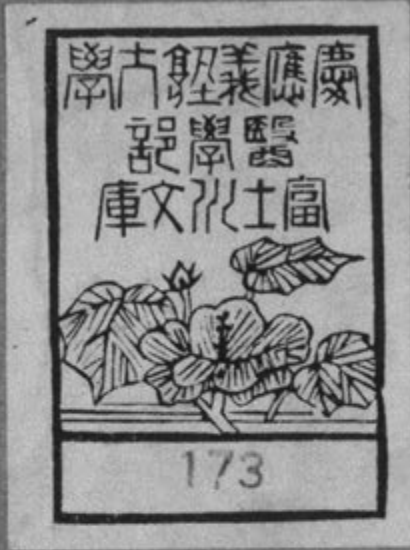 慶應義塾大學
醫學部
富士川文庫
173